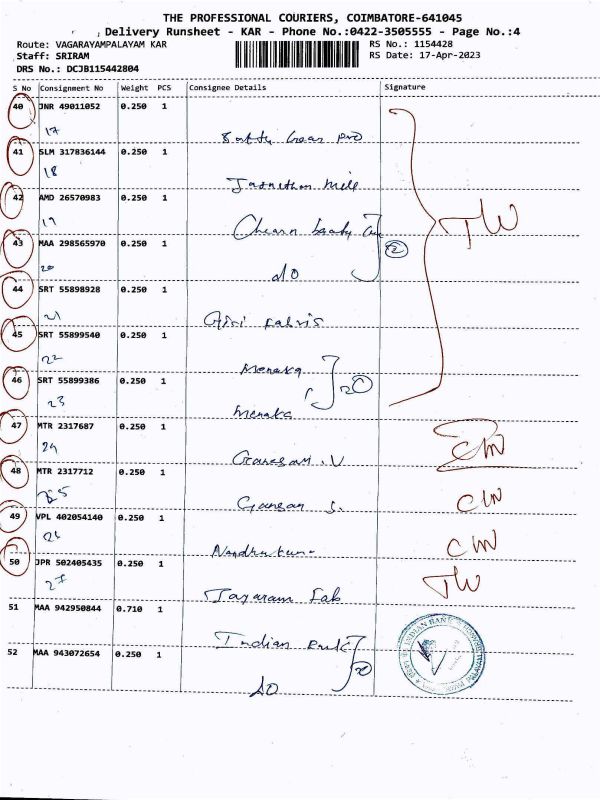 THE PROFESSIONAL COURIERS, COIMBATORE-641045
Delivery Runsheet - KAR - Phone No.:0422-3505555 - Page No.:4
Route: VAGARAYAMPALAYAM KAR
RS No.: 1154428
Staff: SRIRAM
RS Date: 17-Apr-2023
DRS No.: DCJB115442804
S No Consignment No Weight PCS Consignee Details Signature
40 JNR 49011052 0.250 1
17
41 SLM 317836144 0.250 1
18
42 AMD 26570983 0.250 1
19
43 MAA 298565970 0.250 1
20 do
44 SRT 55898928 0.250 1
21 Giri fabris
45 SRT 55899540 0.250 1
22 Menaka
46 SRT 55899386 0.250 1
23 Menaka
TW
47 MTR 2317687 0.250 1
24 Ganesan .V
48 MTR 2317712 0.250 1
25 Gansan S.
49 VPL 402054140 0.250 1
26
50 JPR 502405435 0.250 1
TW
27 Jayaram Fab
51 MAA 942950844 0.710 1
Indian Bank
52 MAA 943072654 0.250 1
do
INDIAN BANK